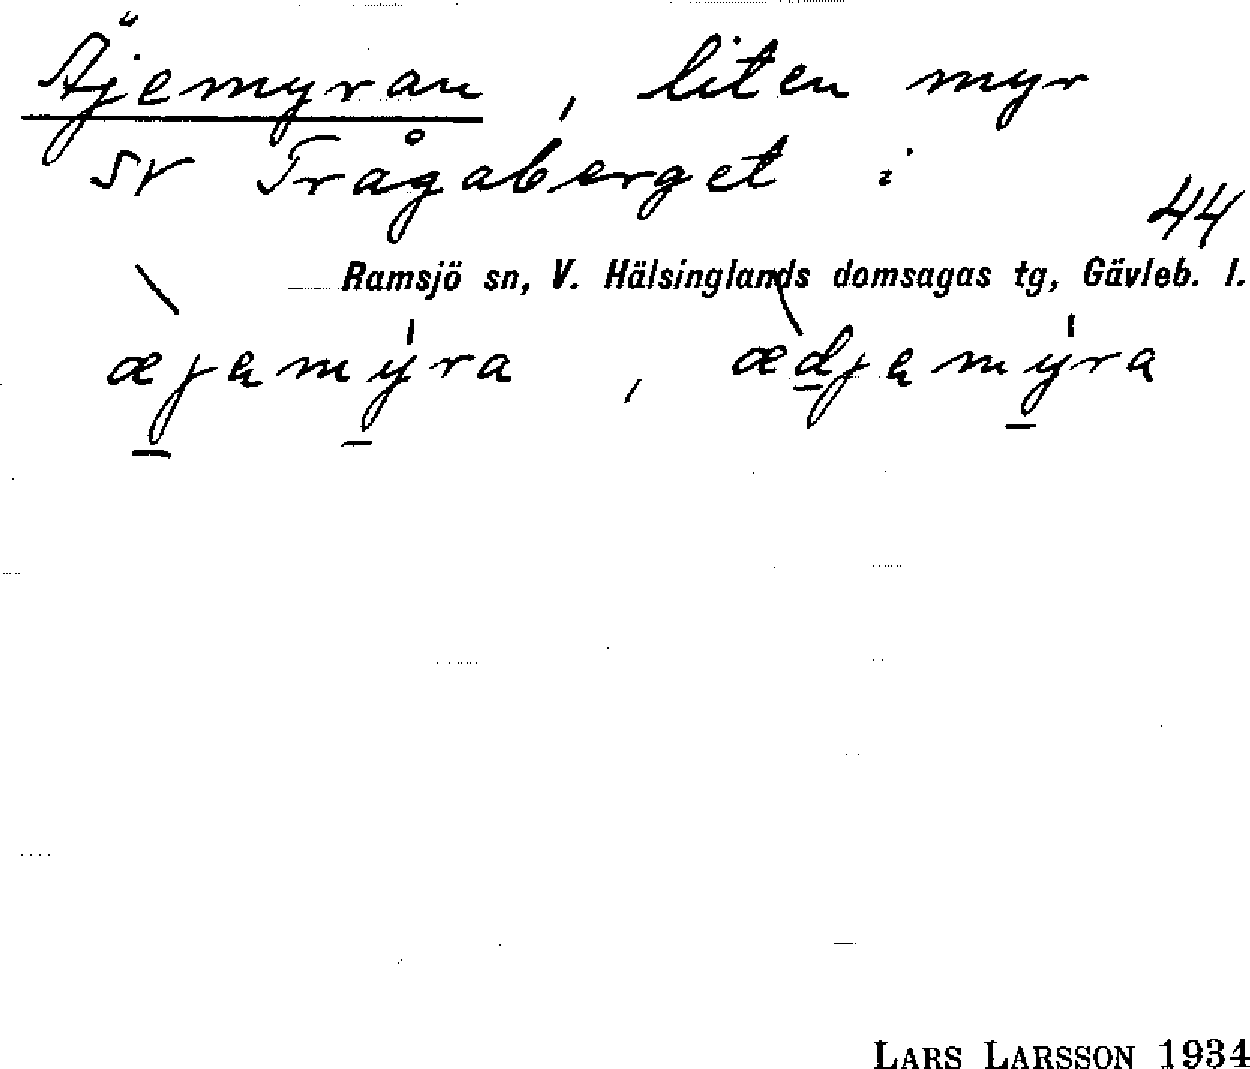 Äjemyran, liten myr
SV Trågaberget i
44
Ramsjö sn, V. Hälsinglands domsagas tg, Gävleb. l.
æjamy̆ra, ædjamy̆ra
LARS LARSSON 1934